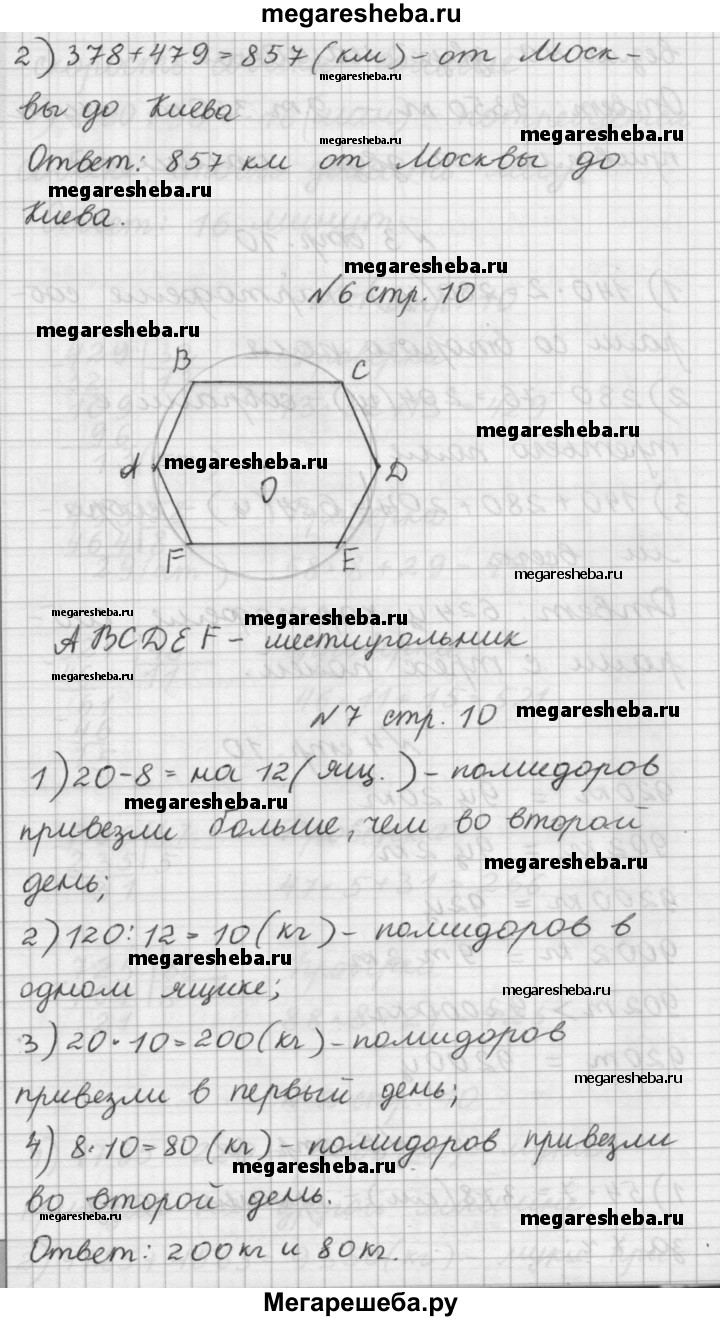 megaresheba.ru
2) 378+479=857(км)- от Моск-
megaresheba.ru
вы до Киева
megaresheba.ru
megaresheba.ru
Ответ: 857 км от Москвы до
megaresheba.ru
Киева.
megaresheba.ru
№6 стр. 10
megaresheba.ru
B
C
megaresheba.ru
A
megaresheba.ru
D
O
F
E
megaresheba.ru
megaresheba.ru
megaresheba.ru
ABCDEF - шестиугольник
megaresheba.ru
№7 стр. 10
megaresheba.ru
1) 20-8= на 12( ящ. ) - помидоров
megaresheba.ru
привезли больше, чем во второй
megaresheba.ru
день;
2) 120:12=10(кг)- помидоров в
megaresheba.ru
одном ящике;
megaresheba.ru
3) 20·10=200(кг)-помидоров
megaresheba.ru
привезли в первый день;
4) 8·10=80(кг)- помидоров привезли
megaresheba.ru
во второй день.
megaresheba.ru
megaresheba.ru
Ответ: 200кг и 80кг.
Мегарешеба.ру